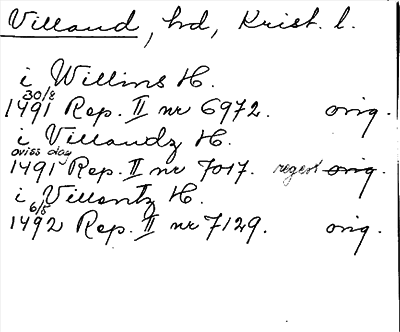 Villand, hd, Krist. l.
i Willins H.
30/8
1491 Rep. II nr 6972. orig.
i Villandz H.
oviss dag
1491 Rep. II nr 7017. regest orig.
i Villantz H.
6/5
1492 Rep. II nr 7129. orig.